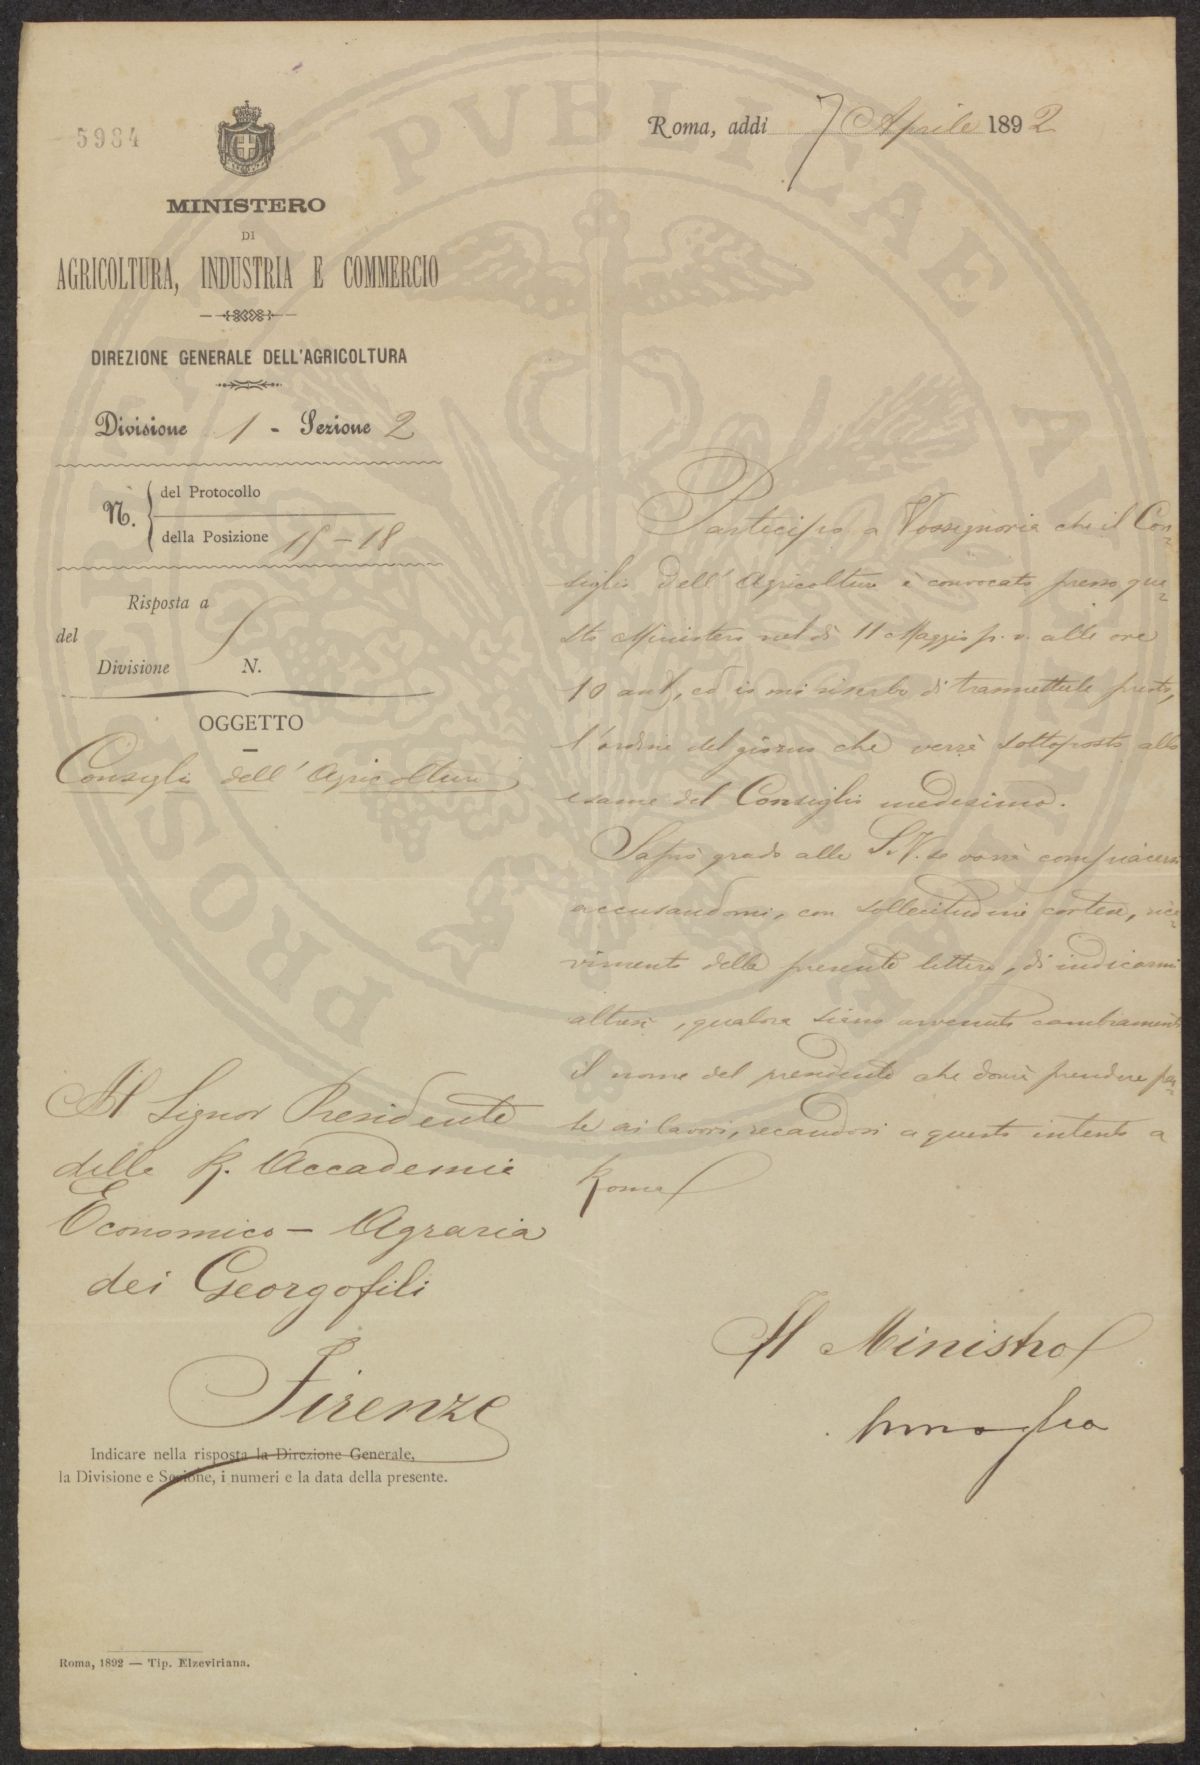 5984
MINISTERO
DI
AGRICOLTURA, INDUSTRIA E COMMERCIO
DIREZIONE GENERALE DELL'AGRICOLTURA
Divisione 1 - Sezione 2
N. del Protocollo
della Posizione 15-18
Risposta a
del
Divisione N.
OGGETTO
Consiglio dell'Agricoltura
Al Signor Presidente
della R. Accademia
Economico - Agraria
dei Georgofili
Firenze
Indicare nella risposta la Direzione Generale,
la Divisione e Sezione, i numeri e la data della presente.
Roma, 1892 — Tip. Elzeviriana.
Roma, addi 7 Aprile 1892
Partecipo a Vossignoria che il Con=
siglio dell'Agricoltura è convocato presso que=
sto Ministero nel dì 11 Maggio p. v. alle ore
10 ant, ed io mi riserbo di trasmetterle presto,
l'ordine del giorno che verrà sottoposto allo
esame del Consiglio medesimo.
Saprò grado alla S. V. se vorrà compiacersi
accusandomi, con sollecitudine cortese, rice=
vimento della presente lettera, di indicarmi
altresì, qualora siano avvenuti cambiamenti
il nome del presidente che dovrà prendere par=
te ai lavori, recandosi a questo intento a
Roma
Il Ministro
PROSPERITATI PVBLICAE AVGENDAE